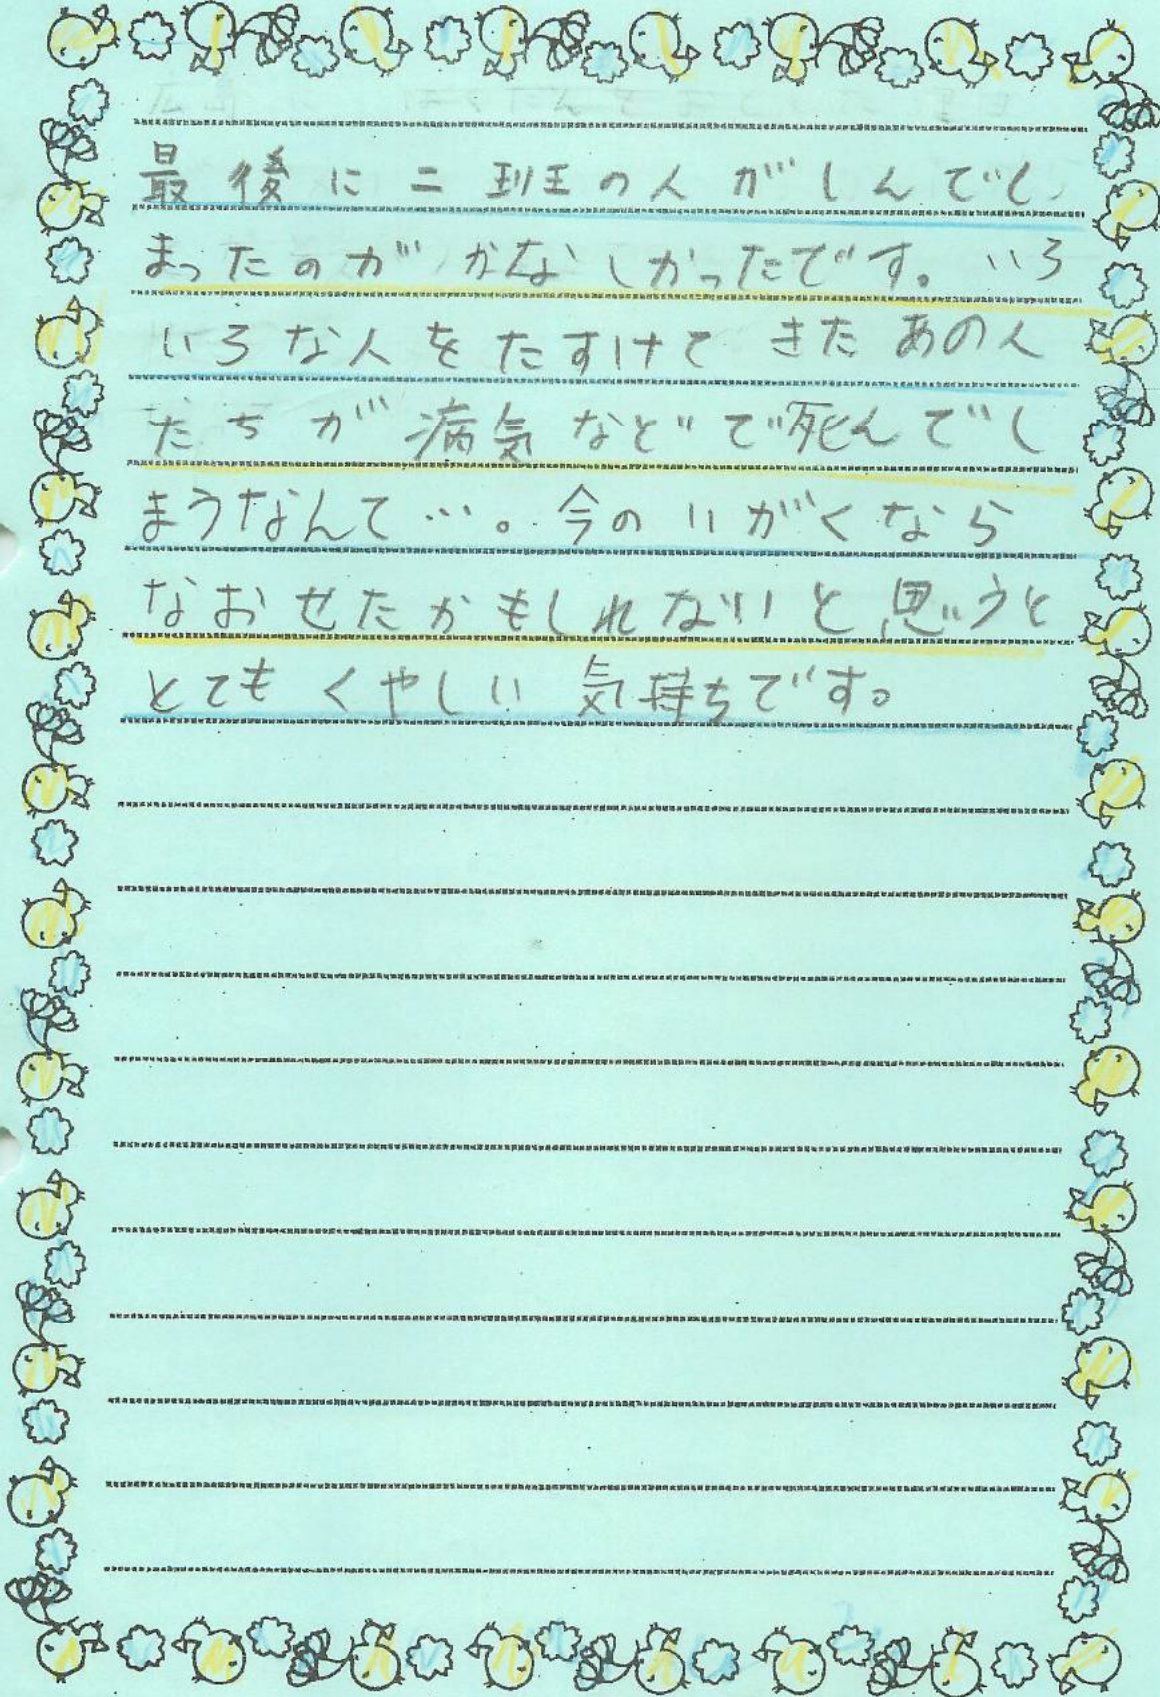 最後に二班の人がしんでし
まったのがかなしかったです。いろ
いろな人をたすけてきたあの人
たちが病気などで死んでし
まうなんて…。今のいがくなら
なおせたかもしれないと思うと
とてもくやしい気持ちです。